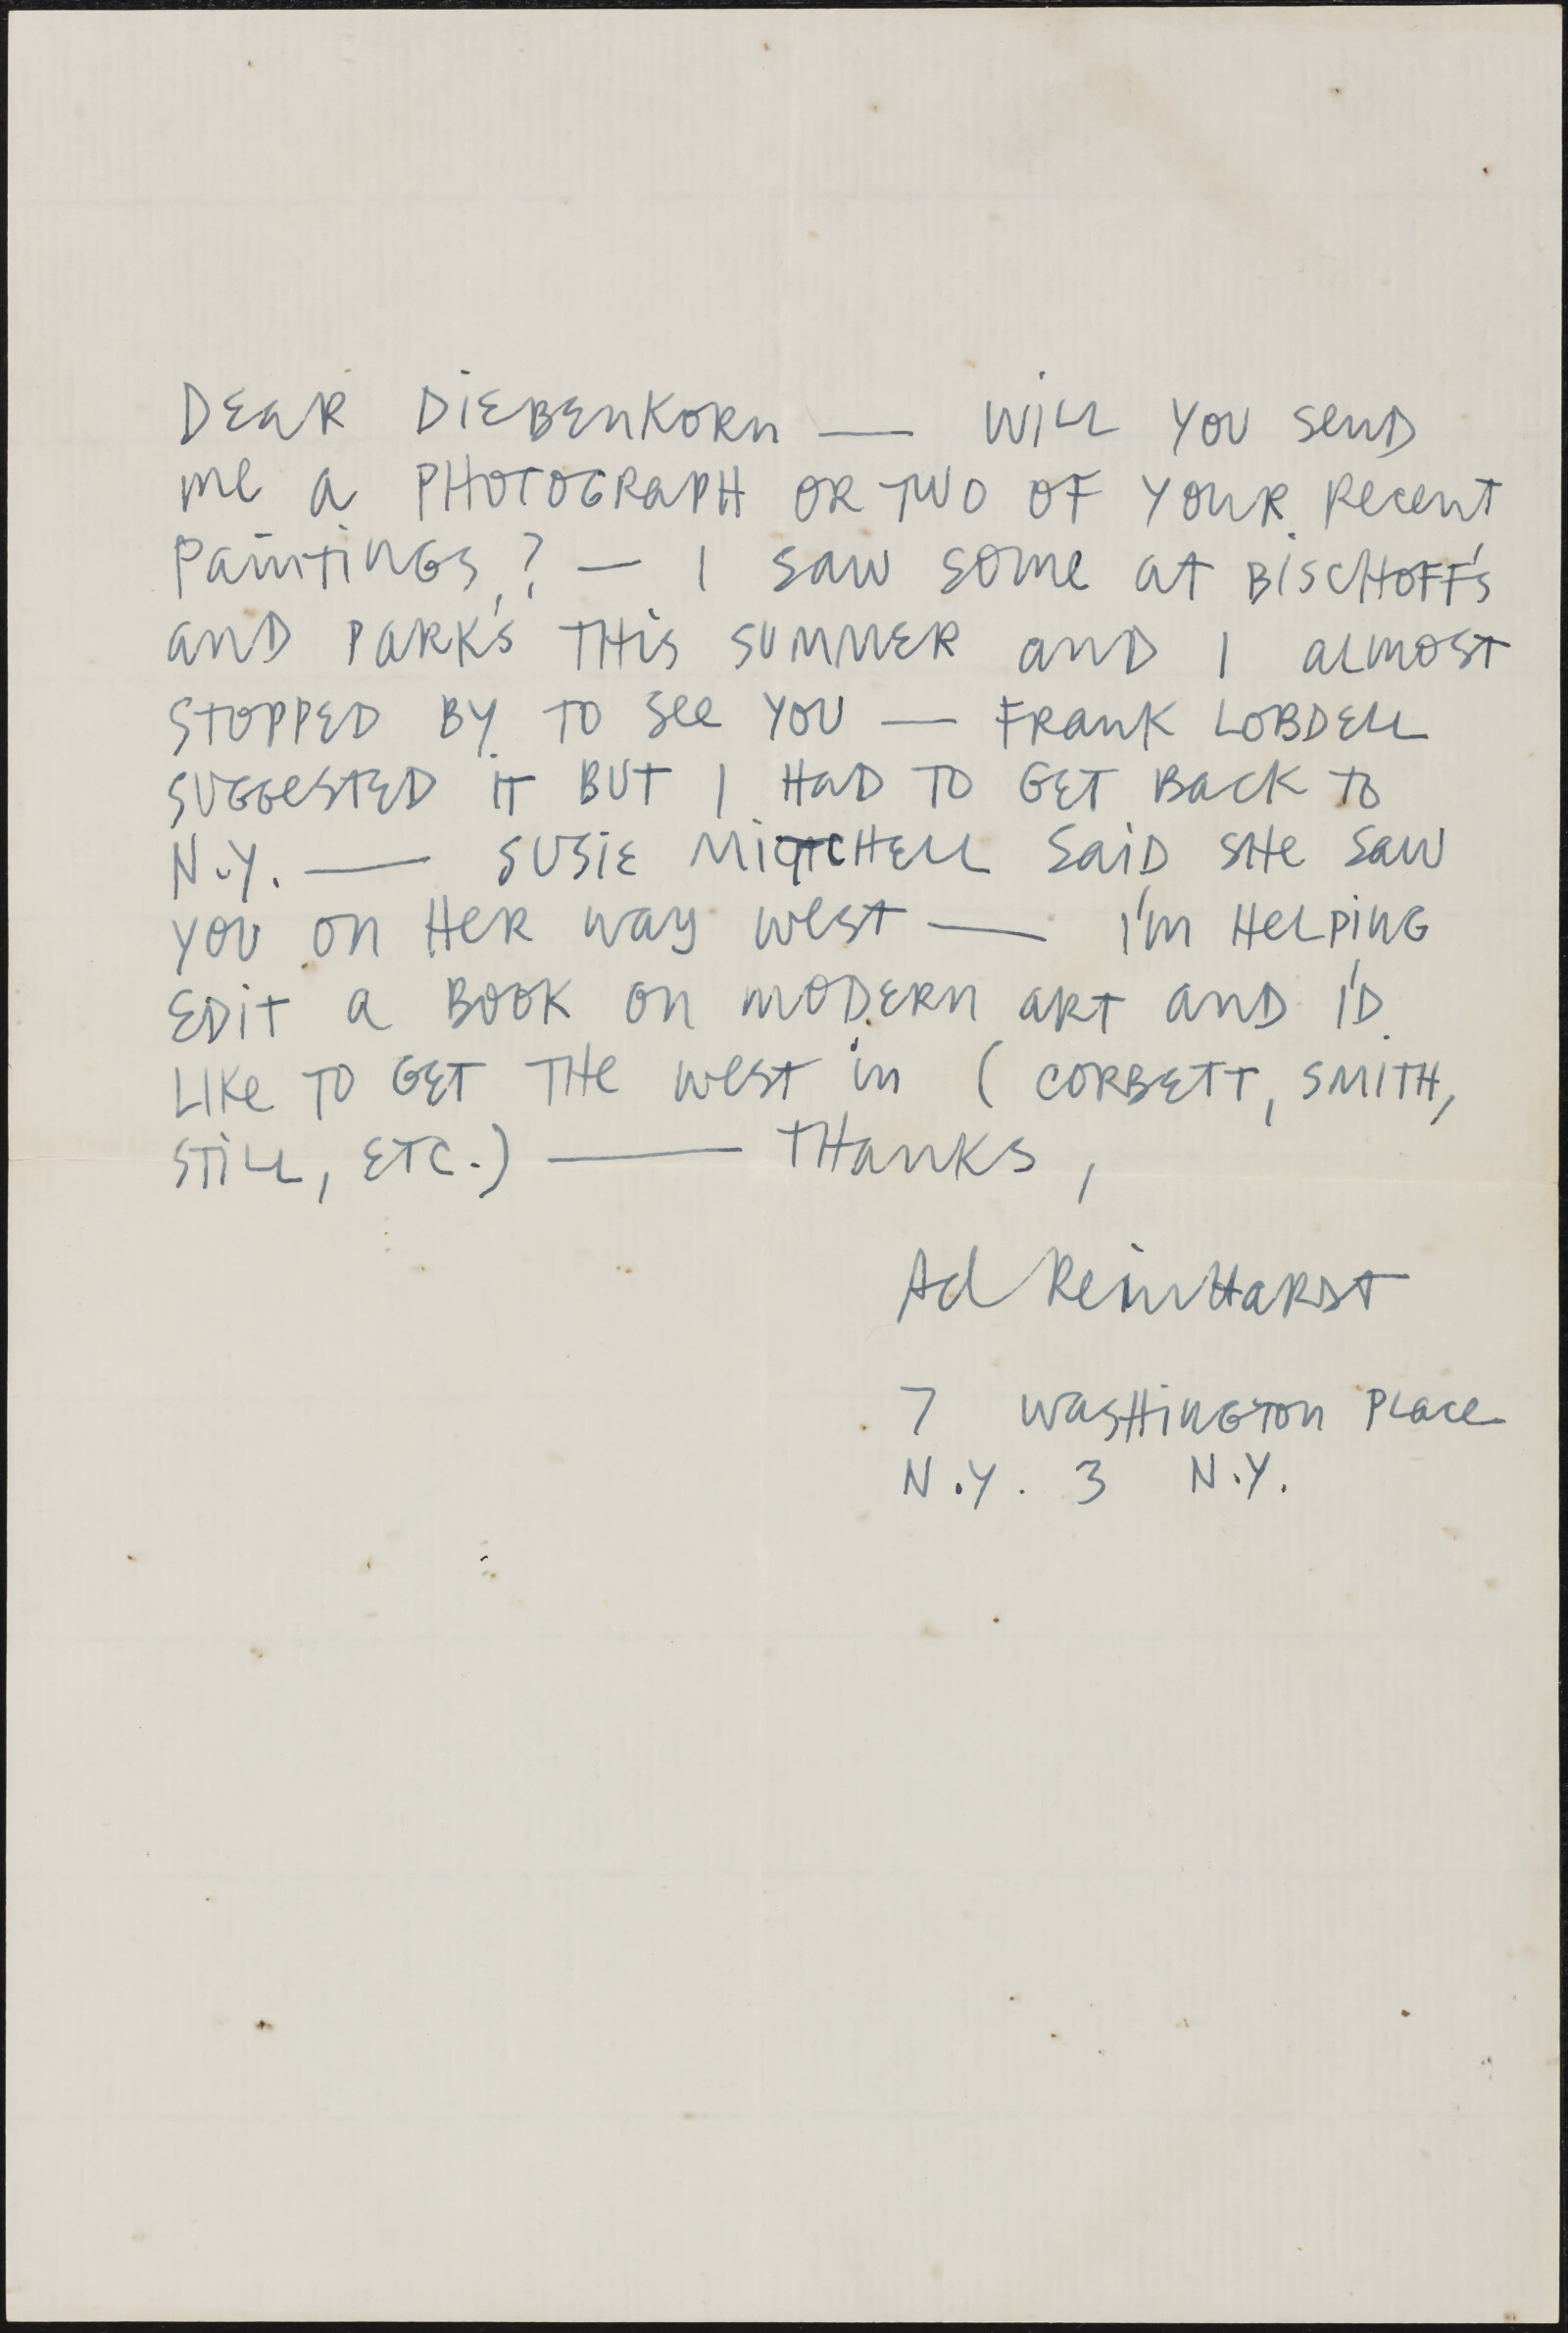 Dear Diebenkorn — Will you send
me a photograph or two of your recent
paintings,? — I saw some at Bischoff's
and Park's this summer and I almost
stopped by to see you — Frank Lobdell
suggested it but I had to get back to
N.Y. — Susie Mitchell said she saw
you on her way west — I'm helping
edit a book on modern art and I'd
like to get the west in (Corbett, Smith,
Still, etc.) — Thanks,
Ad Reinhardt
7 Washington Place
N.Y. 3 N.Y.